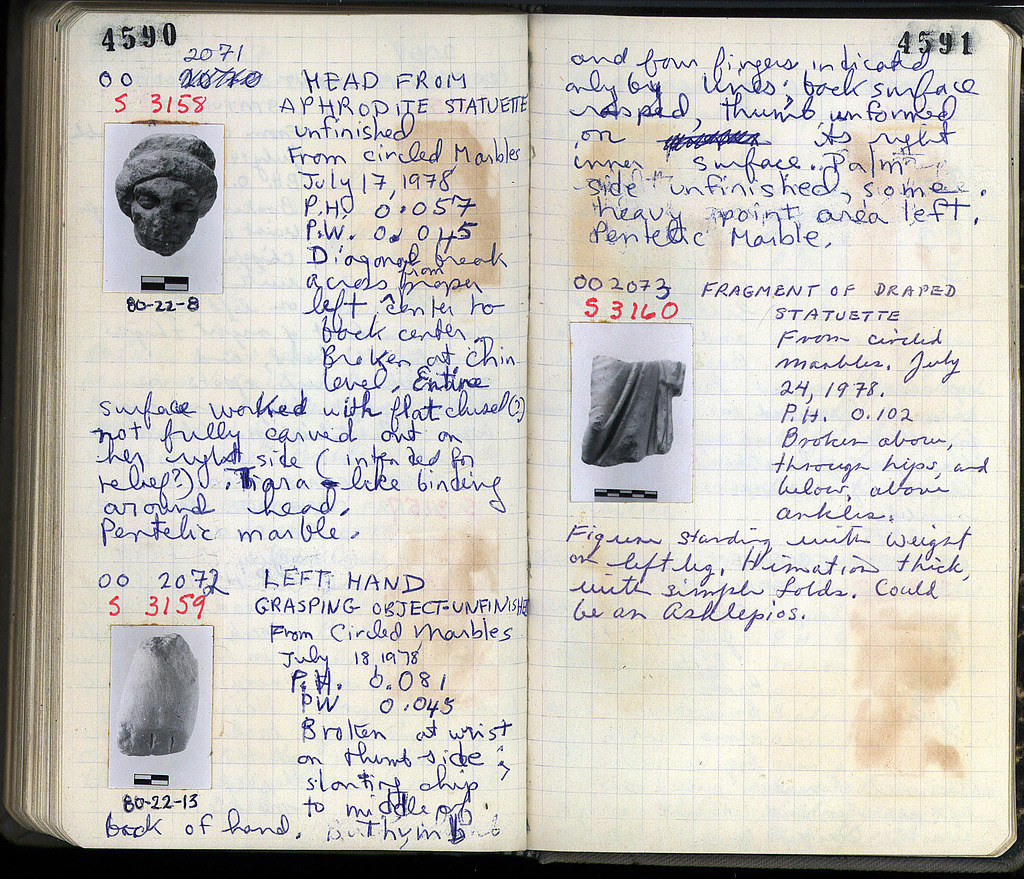 4590
2071
OO HEAD FROM
S 3158 APHRODITE STATUETTE
unfinished
From circled Marbles
July 17, 1978
P.H. 0.057
P.W. 0.045
Diagonal break
from
across proper
left center to
back center.
Broken at chin
level. Entire
80-22-8
surface worked with flat chisel(?)
not fully carved out on
her right side (intended for
relief?). Tiara-like binding
around head.
Pentelic marble.
OO 2072 LEFT HAND
S 3159 GRASPING OBJECT-UNFINISHE
From Circled Marbles
July 18, 1978
P.H. 0.081
PW 0.045
Broken at wrist
on thumb side;
slanting chip
to middle of
80-22-13
back of hand. Both
4591
and four fingers indicated
only by lines; back surface
rasped, thumb unformed
on its right
inner surface. Palm
side unfinished, some
heavy point area left.
Pentelic Marble.
OO 2073 FRAGMENT OF DRAPED
S 3160 STATUETTE
From circled
marbles. July
24, 1978.
P.H. 0.102
Broken above,
through hips, and
below, above
ankles.
Figure standing with weight
on left leg. Himation thick,
with simple folds. Could
be an Asklepios.